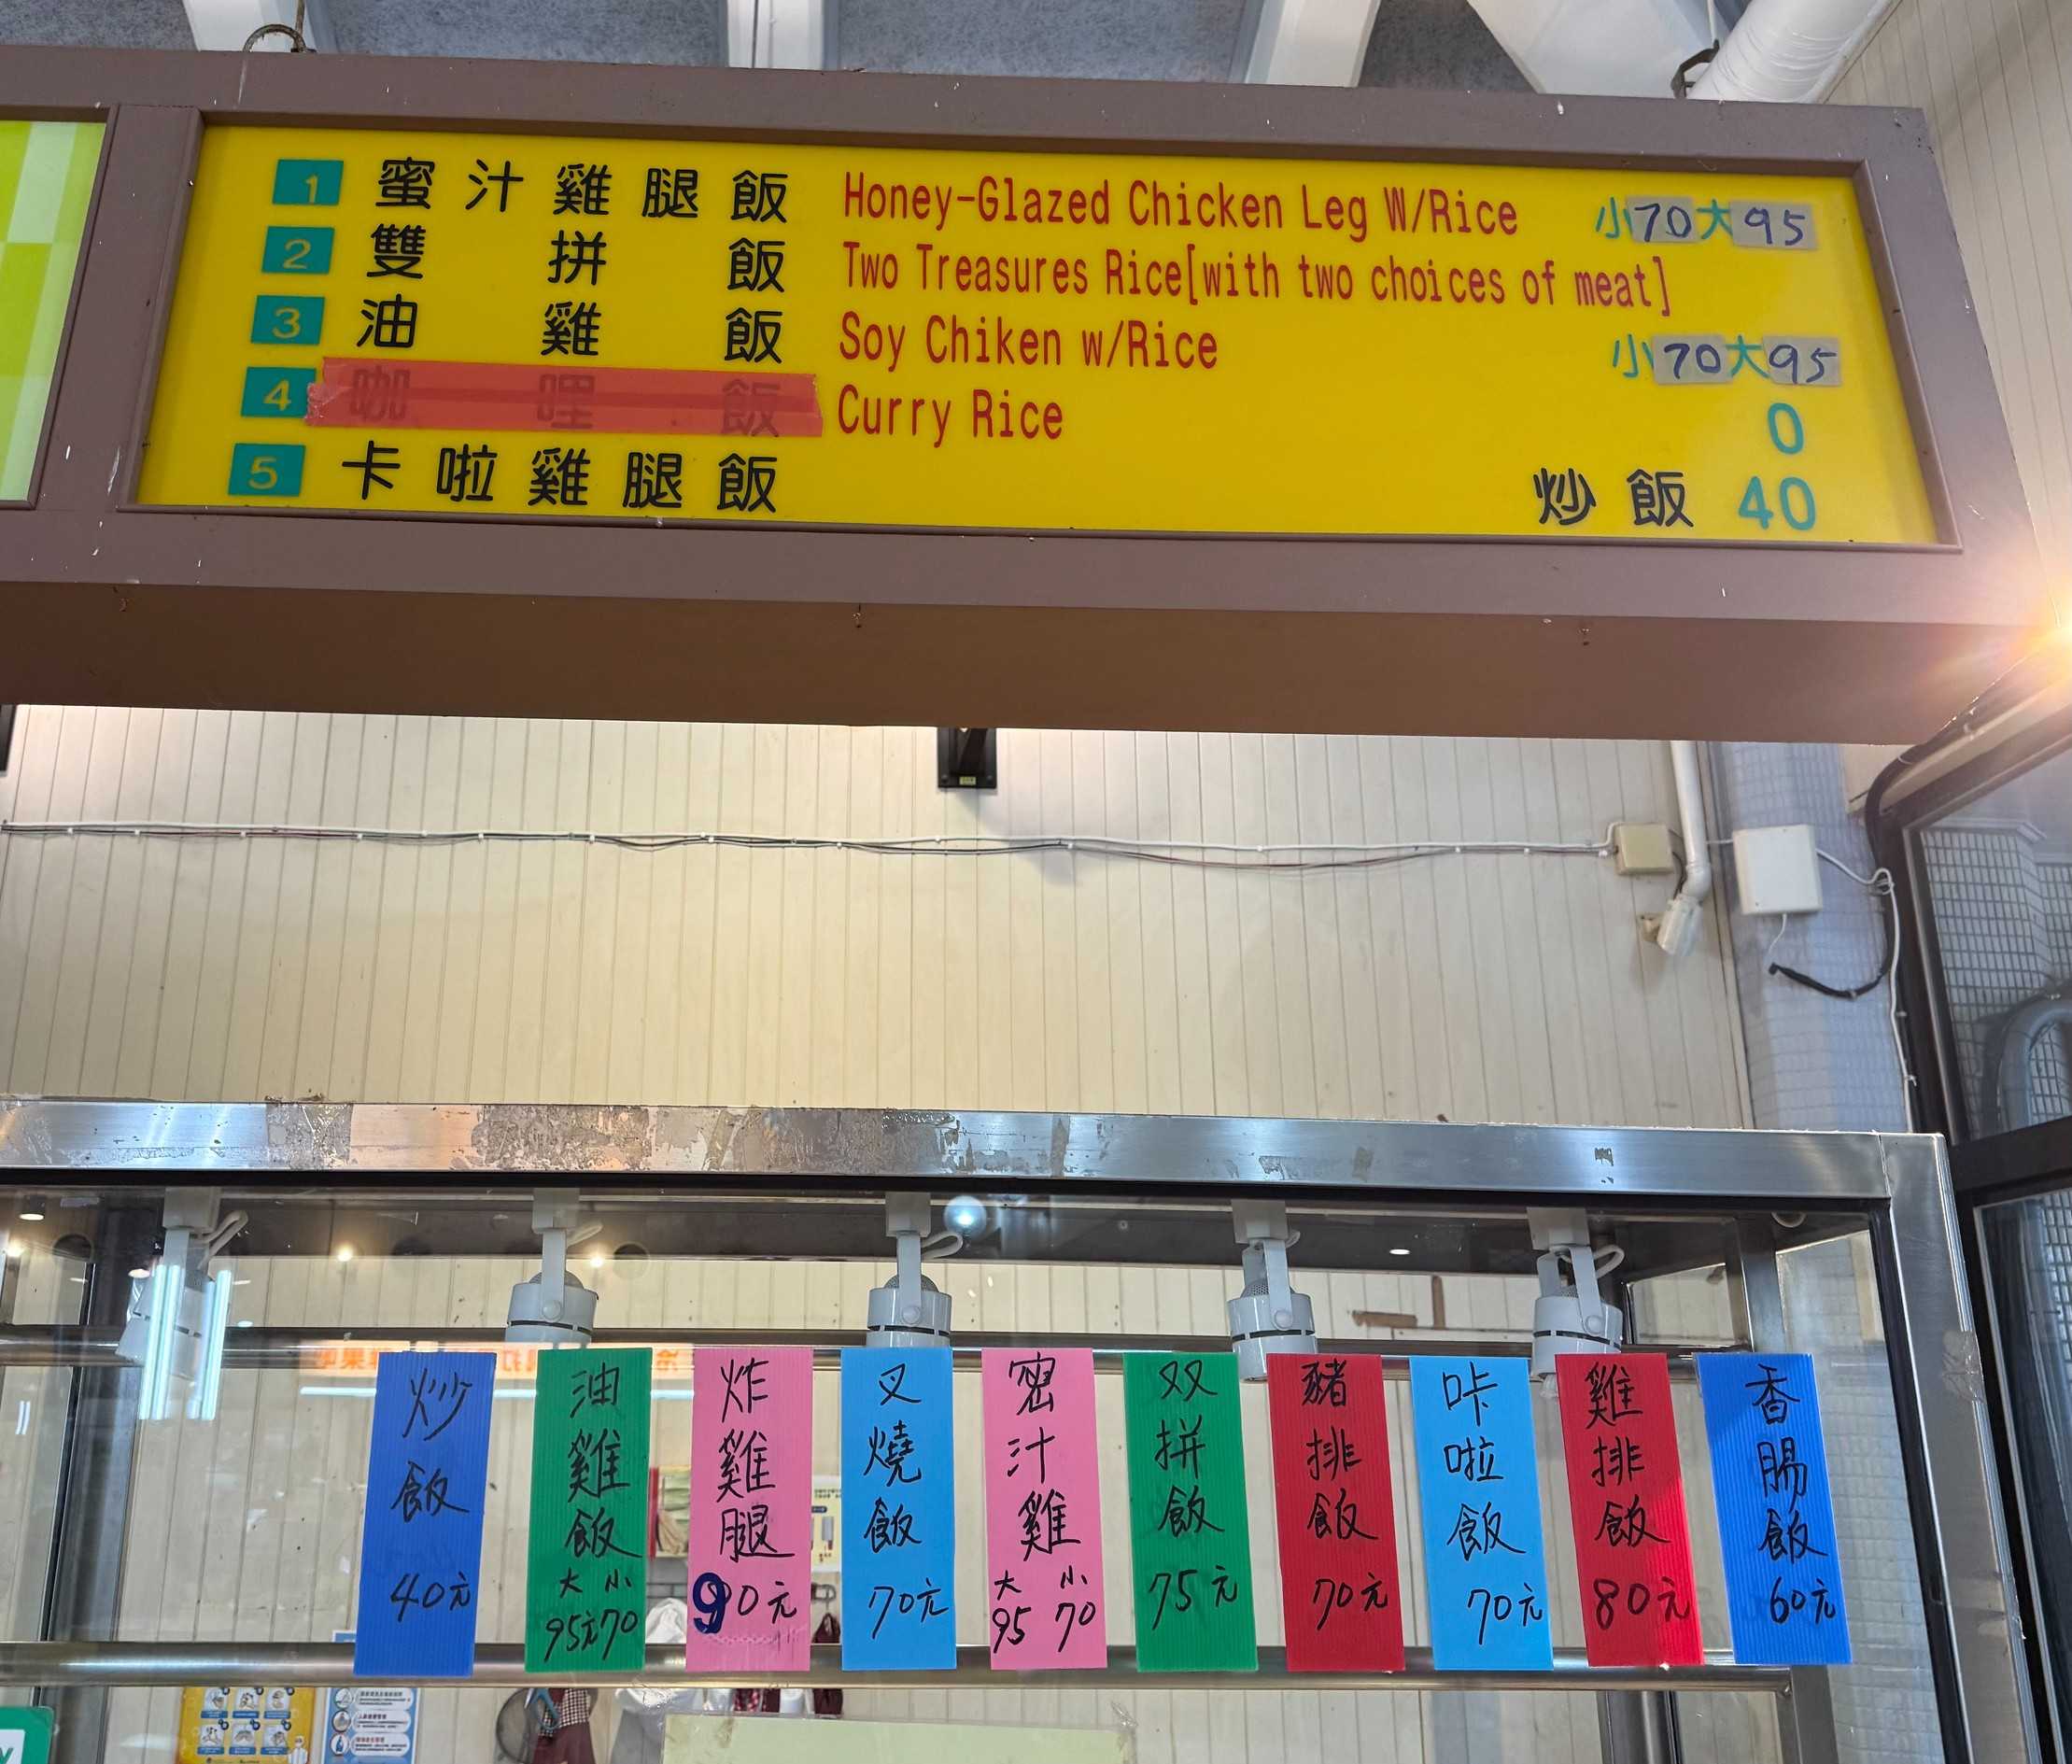 1 蜜汁雞腿飯 Honey-Glazed Chicken Leg W/Rice 小70大95
2 雙拼飯 Two Treasures Rice[with two choices of meat]
3 油雞飯 Soy Chiken w/Rice 小70大95
4 咖哩飯 Curry Rice 0
5 卡啦雞腿飯 炒飯 40
炒飯
40元
油雞飯
大 小
95元70
炸雞腿
90元
叉燒飯
70元
密汁雞
大 小
95 70
双拼飯
75元
豬排飯
70元
咔啦飯
70元
雞排飯
80元
香腸飯
60元